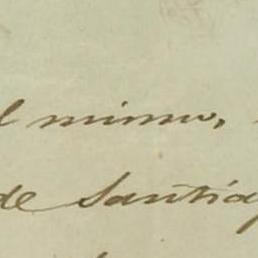 l mismo,
de Santiag